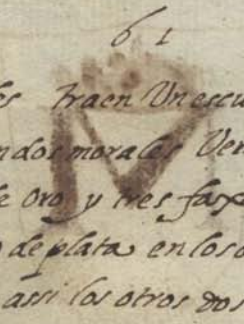 61
es traen Un escu
n dos morales Ver
e oro y tres fax
o de plata en los o
assi los otros dos